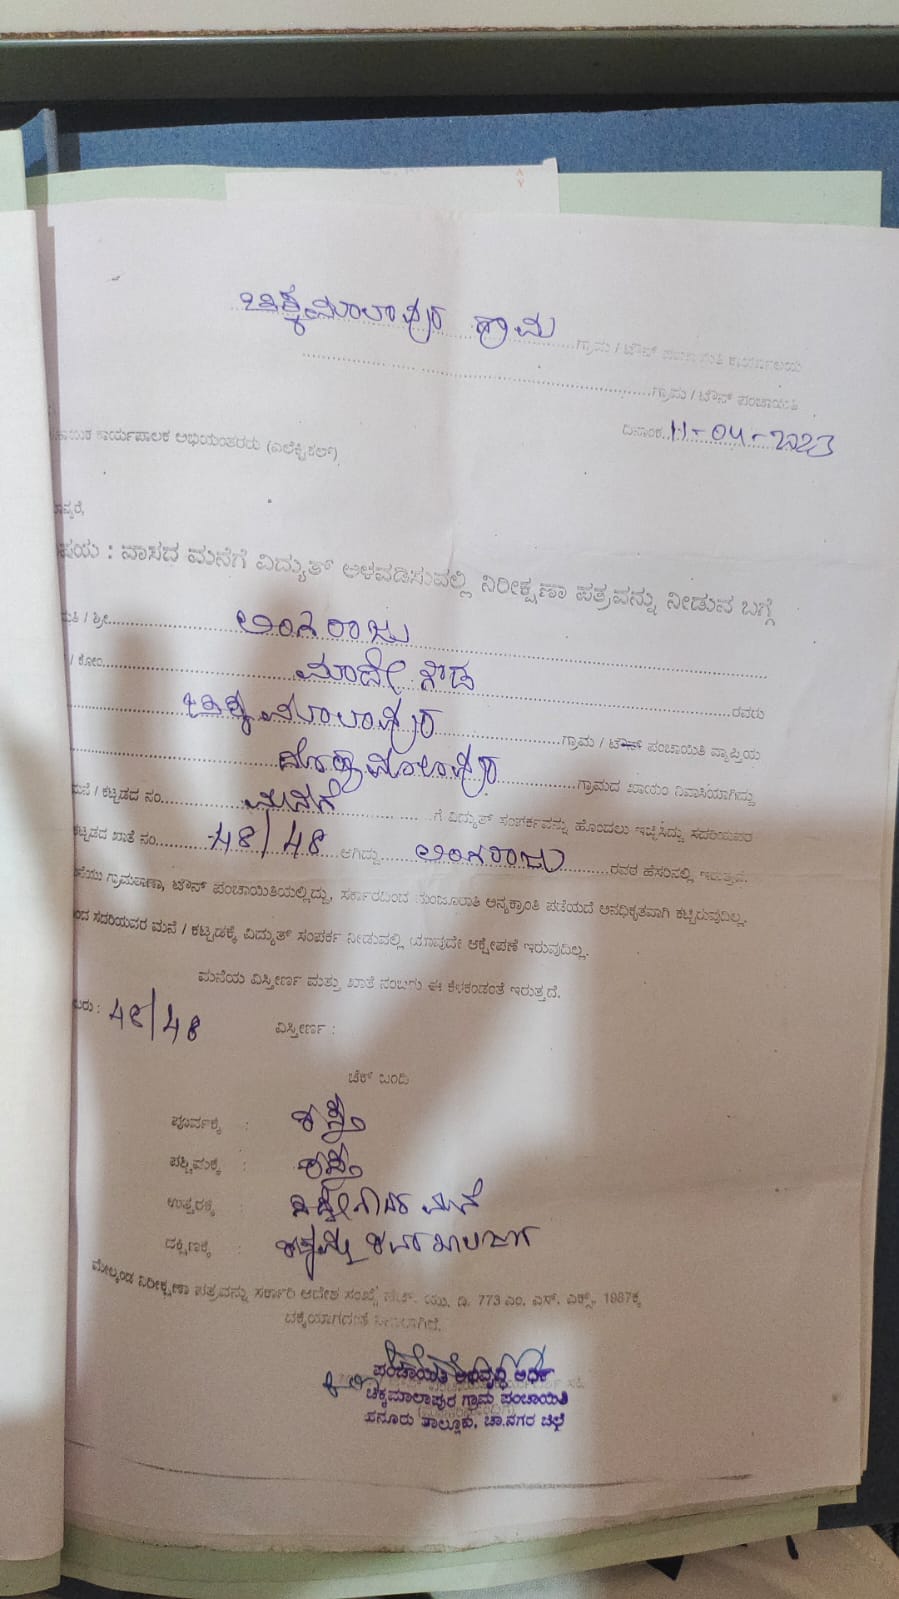 ಚಿಕ್ಕಮಾಲಾಪುರ ಗ್ರಾಮ ಗ್ರಾಮ / ಟೌನ್ ಪಂಚಾಯಿತಿ ಕಾರ್ಯಾಲಯ
ಗ್ರಾಮ / ಟೌನ್ ಪಂಚಾಯಿತಿ
ದಿನಾಂಕ 11-04-2023
ಕಾರ್ಯಪಾಲಕ ಅಭಿಯಂತರರು (ಎಲೆಕ್ಟ್ರಿಕಲ್)
: ವಾಸದ ಮನೆಗೆ ವಿದ್ಯುತ್ ಅಳವಡಿಸುವಲ್ಲಿ ನಿರೀಕ್ಷಣಾ ಪತ್ರವನ್ನು ನೀಡುವ ಬಗ್ಗೆ
/ ಶ್ರೀ ಅಂಗರಾಜು
/ ಕೋಂ ಮಾದೇಗೌಡ ರವರು
ಚಿಕ್ಕಮಾಲಾಪುರ ಗ್ರಾಮ / ಟೌನ್ ಪಂಚಾಯಿತಿ ವ್ಯಾಪ್ತಿಯ
ದೊಡ್ಡಮಾಲಾಪುರ ಗ್ರಾಮದ ಖಾಯಂ ನಿವಾಸಿಯಾಗಿದ್ದು
ಮನೆ / ಕಟ್ಟಡದ ನಂ ಮನೆಗೆ ಗೆ ವಿದ್ಯುತ್ ಸಂಪರ್ಕವನ್ನು ಹೊಂದಲು ಇಚ್ಛಿಸಿದ್ದು ಸದರಿಯವರ
ಕಟ್ಟಡದ ಖಾತೆ ನಂ 48/48 ಆಗಿದ್ದು ಅಂಗರಾಜು ರವರ ಹೆಸರಿನಲ್ಲಿ ಇರುತ್ತದೆ.
ಗ್ರಾಮಠಾಣಾ, ಟೌನ್ ಪಂಚಾಯಿತಿಯಲ್ಲಿದ್ದು, ಸರ್ಕಾರದಿಂದ ಮಂಜೂರಾತಿ ಅನ್ಯಕ್ರಾಂತಿ ಪಡೆಯದೆ ಅನಧಿಕೃತವಾಗಿ ಕಟ್ಟಿರುವುದಿಲ್ಲ.
ಸದರಿಯವರ ಮನೆ / ಕಟ್ಟಡಕ್ಕೆ ವಿದ್ಯುತ್ ಸಂಪರ್ಕ ನೀಡುವಲ್ಲಿ ಯಾವುದೇ ಆಕ್ಷೇಪಣೆ ಇರುವುದಿಲ್ಲ.
ಮನೆಯ ವಿಸ್ತೀರ್ಣ ಮತ್ತು ಖಾತೆ ನಂಬರು ಈ ಕೆಳಕಂಡಂತೆ ಇರುತ್ತದೆ.
: 48/48 ವಿಸ್ತೀರ್ಣ :
ಚೆಕ್ ಬಂದಿ
ಪೂರ್ವಕ್ಕೆ : ರಸ್ತೆ
ಪಶ್ಚಿಮಕ್ಕೆ : ರಸ್ತೆ
ಉತ್ತರಕ್ಕೆ : ಮನೆ
ದಕ್ಷಿಣಕ್ಕೆ :
ಮೇಲ್ಕಂಡ ನಿರೀಕ್ಷಣಾ ಪತ್ರವನ್ನು ಸರ್ಕಾರಿ ಆದೇಶ ಸಂಖ್ಯೆ ಹೆಚ್. ಯು. ಡಿ. 773 ಎಂ. ಎನ್. ಎಕ್ಸ್. 1987ಕ್ಕೆ
ನೀಡಲಾಗಿದೆ.
ಪಂಚಾಯಿತಿ ಅಭಿವೃದ್ಧಿ
ಚಿಕ್ಕಮಾಲಾಪುರ ಗ್ರಾಮ ಪಂಚಾಯಿತಿ
ಹನೂರು ತಾಲ್ಲೂಕು, ಚಾ.ನಗರ ಜಿಲ್ಲೆ